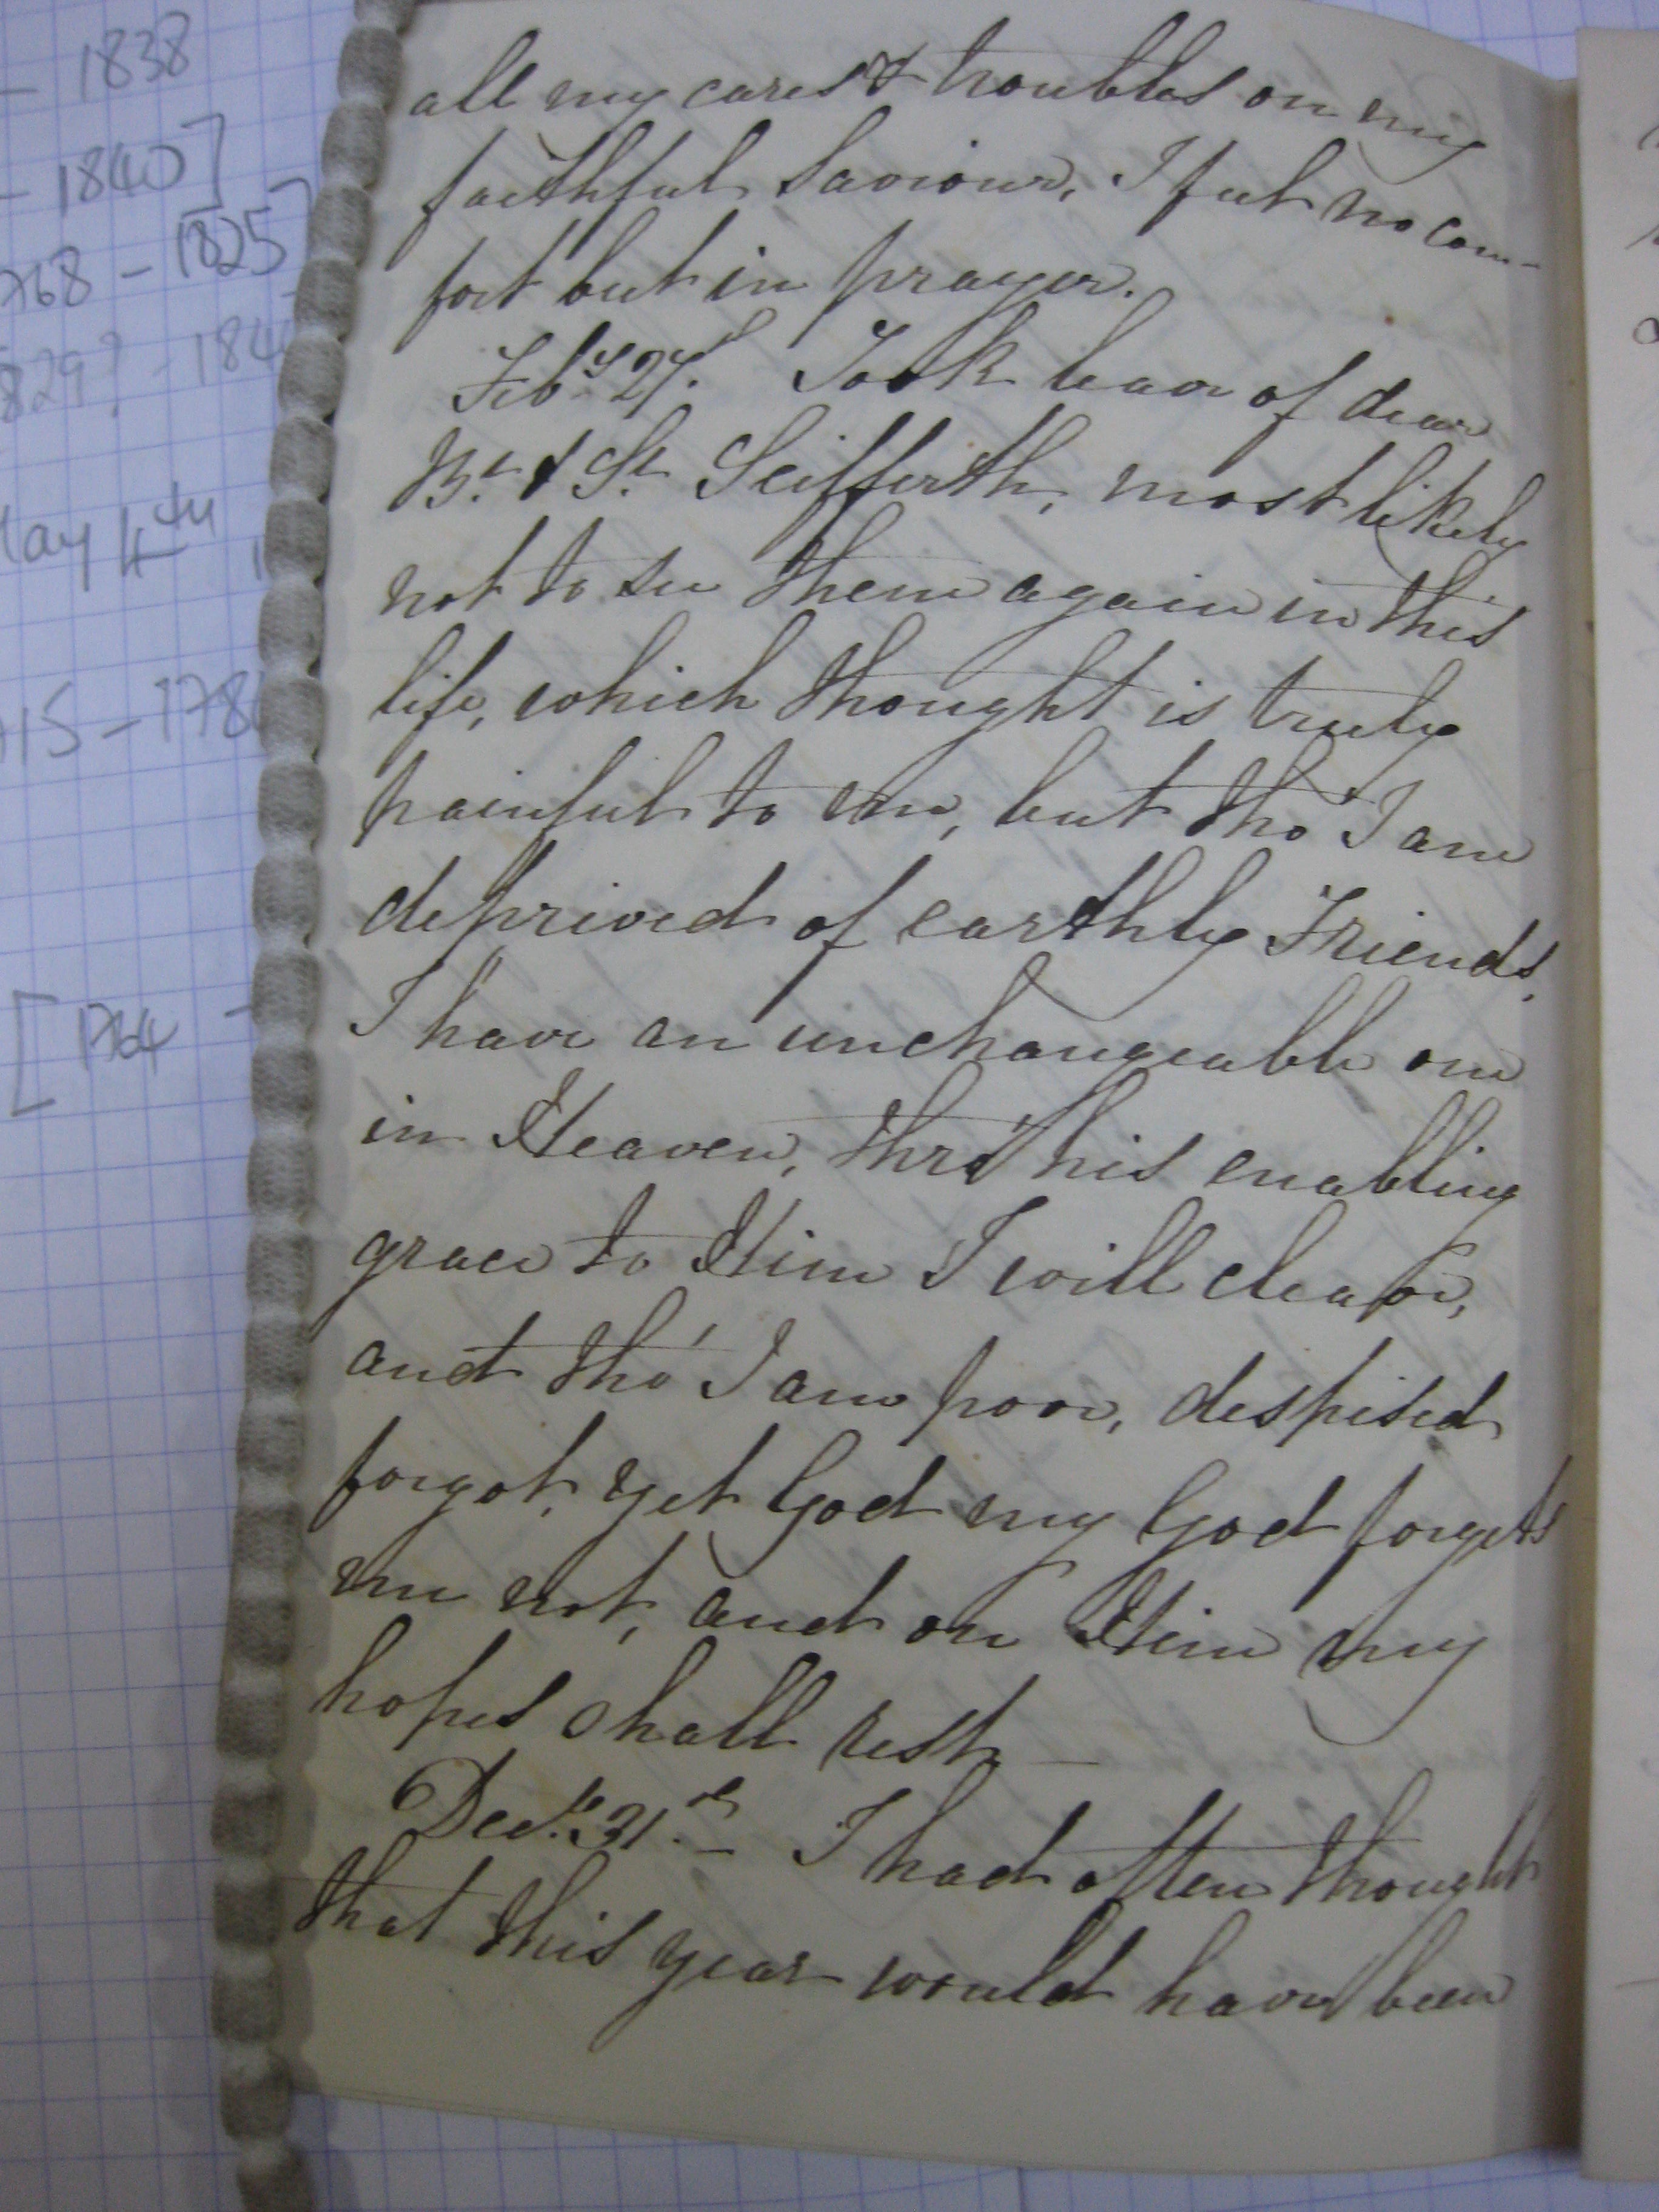 - 1838
- 1840]
768 - 1825]
829? - 184
May 4th
15 - 178
[1764 -
all my cares & troubles on my
faithful Saviour, I feel no com-
fort but in prayer.
Feby 27. Took leave of dear
Br. & Sr. Seifferth, most likely
not to see them again in this
life, which thought is truly
painful to me, but tho' I am
deprived of earthly Friends,
I have an unchangeable one
in Heaven, thro' his enabling
grace to Him I will cleave,
and tho' I am poor, despised
forgot, yet God my God forgets
me not, and on Him my
hopes shall rest —
Decr. 31st. — I had often thought
that this year would have been